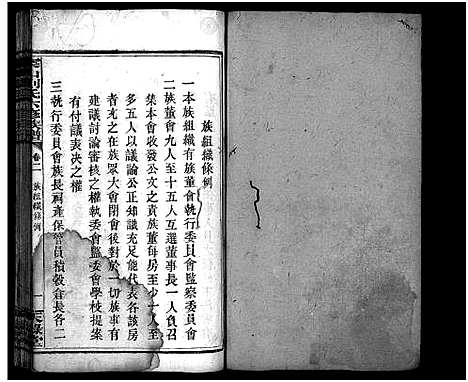 族組織條例
一本族組織有族董會執行委員會監察委員會
二族董會九人至十五人互選董事長一人負召
集本會收發公文之責族董每房至少一人至
多五人以議論公正知識充足能代表各該房
者充之在族眾大會閉會後對於一切族事有
建議討論審核之權執委會監委會學校提案
有付議表決之權
三執行委員會族長祠產保管員積穀倉長各二
劉氏六修族譜
卷二
族組織條例
一